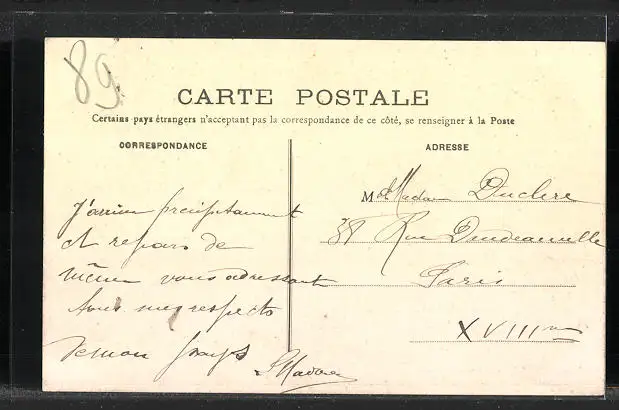 89
CARTE POSTALE
Certains pays étrangers n'acceptant pas la correspondance de ce côté, se renseigner à la Poste
CORRESPONDANCE
ADRESSE
J'arrive précipitamment
et repars de
même vous adressant
tous mes respects
M et Madame Duclere
Rue
Paris
XVIII me